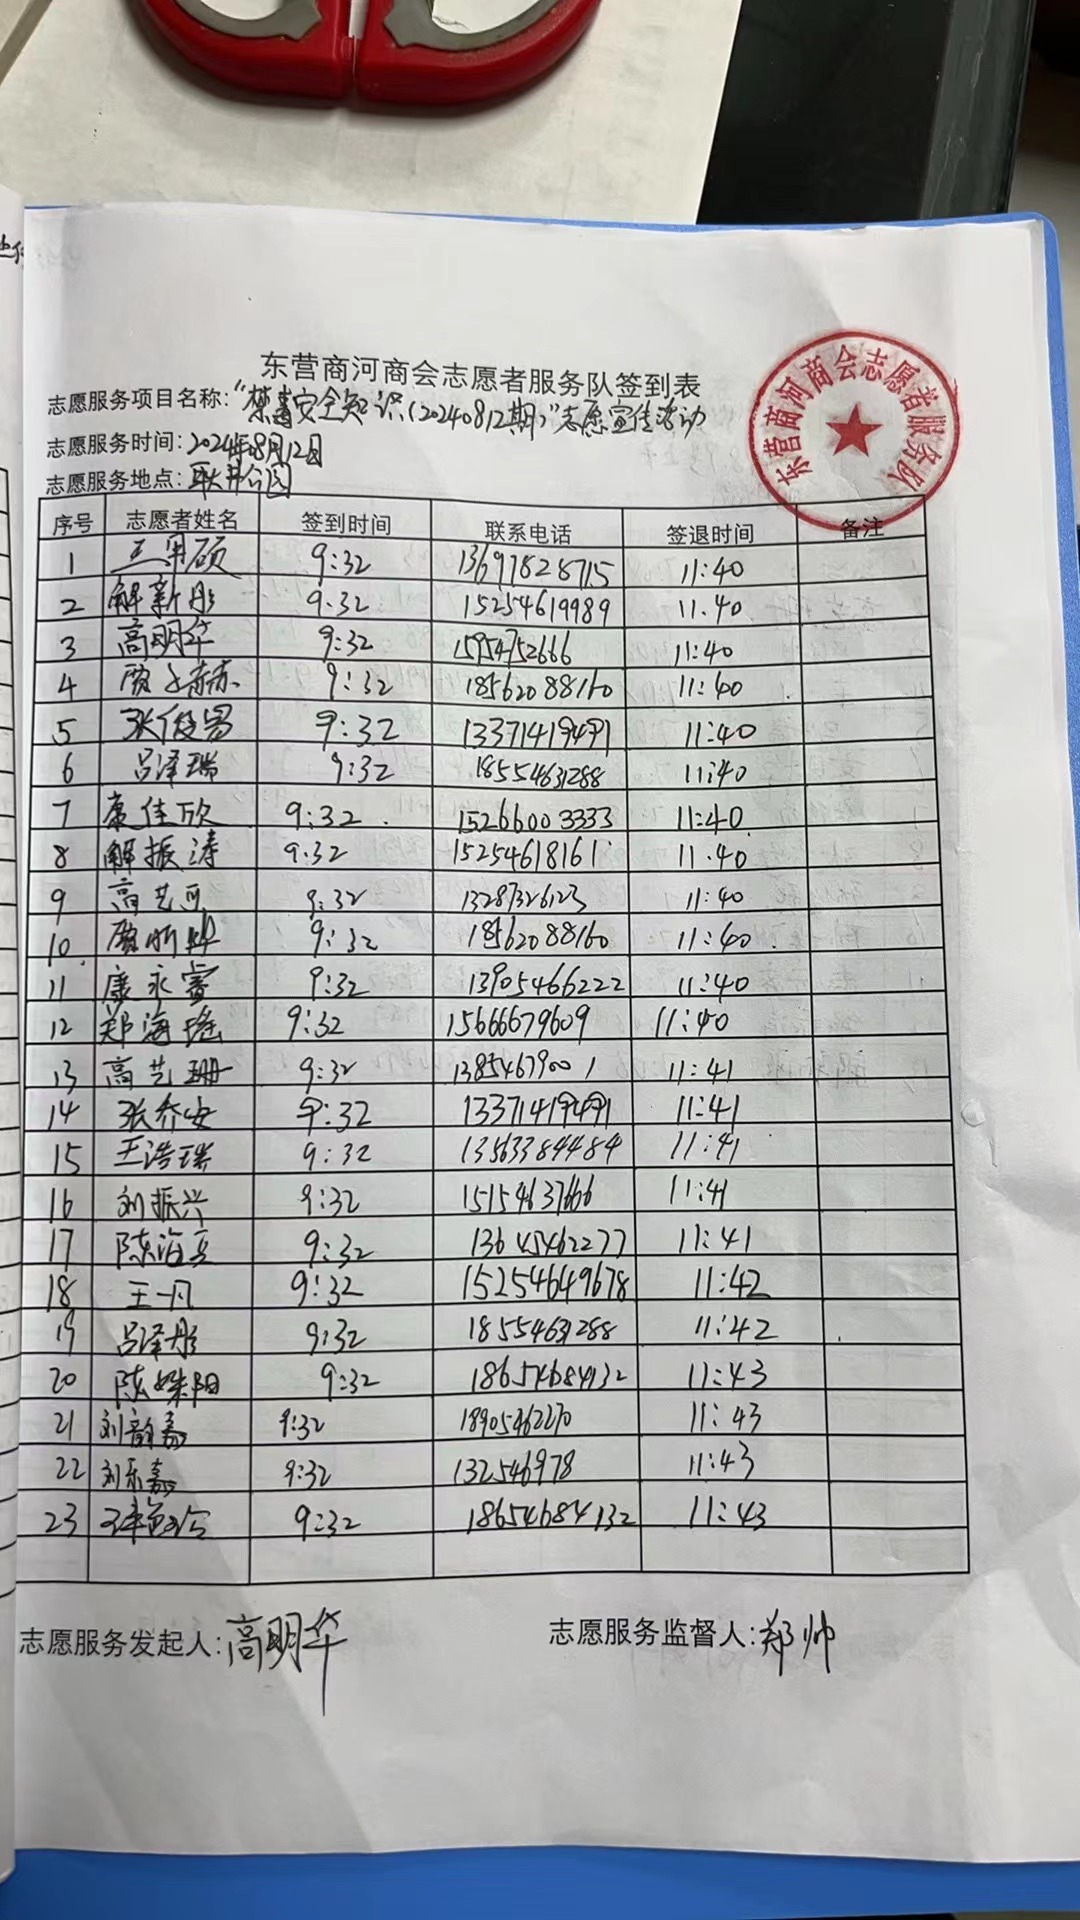 东营商河商会志愿者服务队
东营商河商会志愿者服务队签到表
志愿服务项目名称:“禁毒安全知识(20240812期)”志愿宣传活动
志愿服务时间:2024年08月12日
志愿服务地点:联井公园
序号 志愿者姓名 签到时间 联系电话 签退时间 备注
1 9:32 13697828715 11:40
2 解新彤 9.32 15254619989 11.40
3 高明华 9:32 15954752666 11:40
4 9:32 18562088160 11:40
5 张俊男 9:32 13371419491 11:40
6 吕泽瑞 9:32 18554631288 11:40
7 康佳欣 9:32 15266003333 11:40
8 解振涛 9.32 15254618161 11.40
9 高艺可 9:32 13287326123 11:40
10 9:32 18562088160 11:40
11 康永睿 9:32 13905466222 11:40
12 郑海瑶 9:32 15666679609 11:40
13 高艺珊 9:32 13854679001 11:41
14 张乔安 9:32 13371419491 11:41
15 王浩瑞 9:32 13563384484 11:41
16 刘振兴 9:32 15154637666 11:41
17 陈海 9:32 13645462277 11:41
18 王一凡 9:32 15254649678 11:42
19 吕泽彤 9:32 18554631288 11:42
20 陈姝阳 9:32 18654684132 11:43
21 刘韵嘉 9:32 18905462270 11:43
22 刘乐嘉 9:32 132546978 11:43
23 9:32 18654684132 11:43
志愿服务发起人:高明华 志愿服务监督人:郑帅